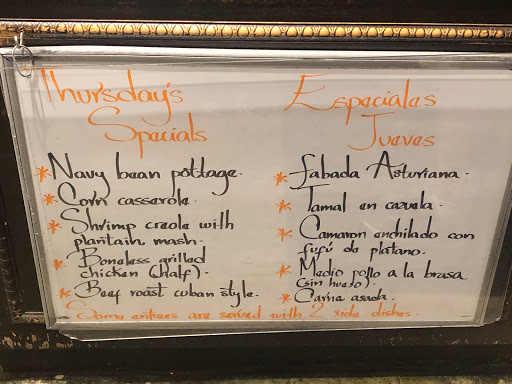 Thursday's
Specials
* Navy bean pottage.
* Corn casserole.
* Shrimp creole with
plantain mash.
* Boneless grilled
chicken (half).
* Beef roast cuban style.
Especiales
Jueves
* Fabada Asturiana.
* Tamal en cazuela.
* Camaron enchilado con
fufú de platano.
* Medio pollo a la brasa
(sin hueso).
* Carne asada.
Some entrees are served with 2 side dishes.